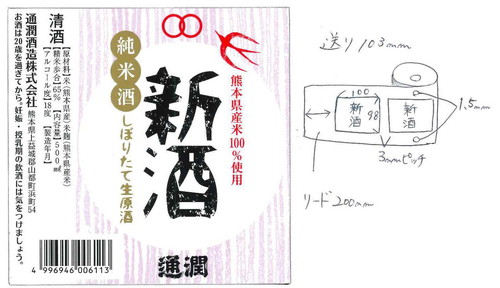 熊本県産米100%使用
新酒
純米酒
しぼりたて生原酒
通潤
清酒
【原材料】米(熊本県産米)米麹(熊本県産米)
【精米歩合】65%【内容量】500ml
【アルコール度】18度 【製造年月】
通潤酒造株式会社 熊本県上益城郡山都町浜町54
お酒は20歳を過ぎてから。妊娠・授乳期の飲酒には気をつけましょう。
4 996946 006113
送り 103mm
100
新酒
98
新酒
1.5mm
3mmピッチ
リード200mm